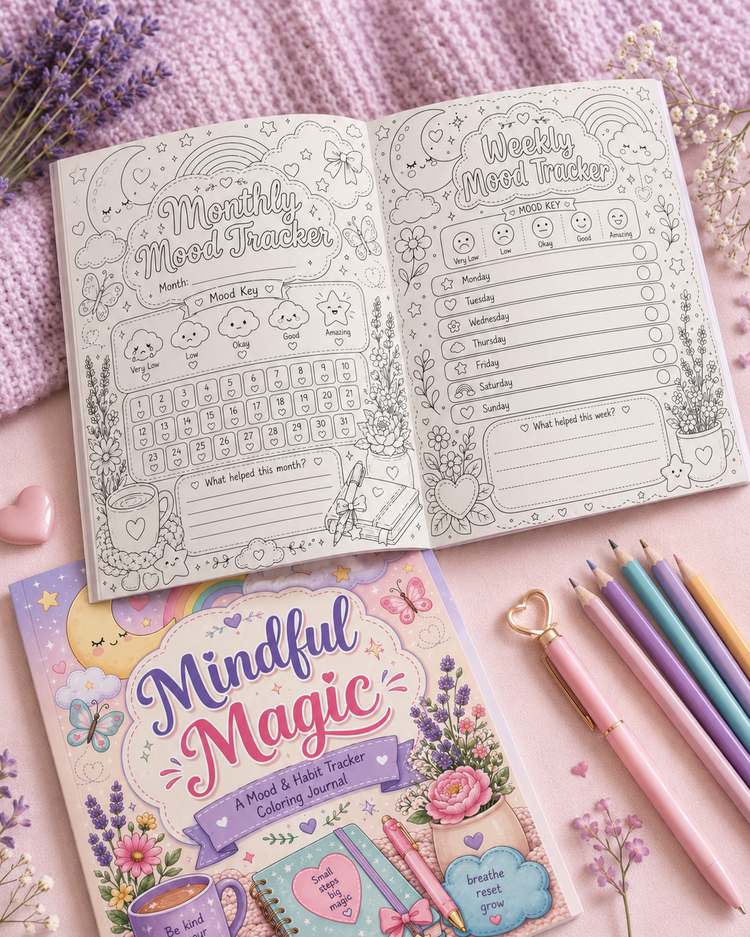 Monthly
Mood Tracker
Month:
Mood Key
Very Low Low Okay Good Amazing
1 2 3 4 5 6 7 8 9 10
12 13 14 15 16 17 18 19 20 21
23 24 25 26 27 28 29 30 31
What helped this month?
Weekly
Mood Tracker
MOOD KEY
Very Low Low Okay Good Amazing
Monday
Tuesday
Wednesday
Thursday
Friday
Saturday
Sunday
What helped this week?
Mindful
Magic
A Mood & Habit Tracker
Coloring Journal
Small
steps
big
magic
breathe
reset
grow
Be kind